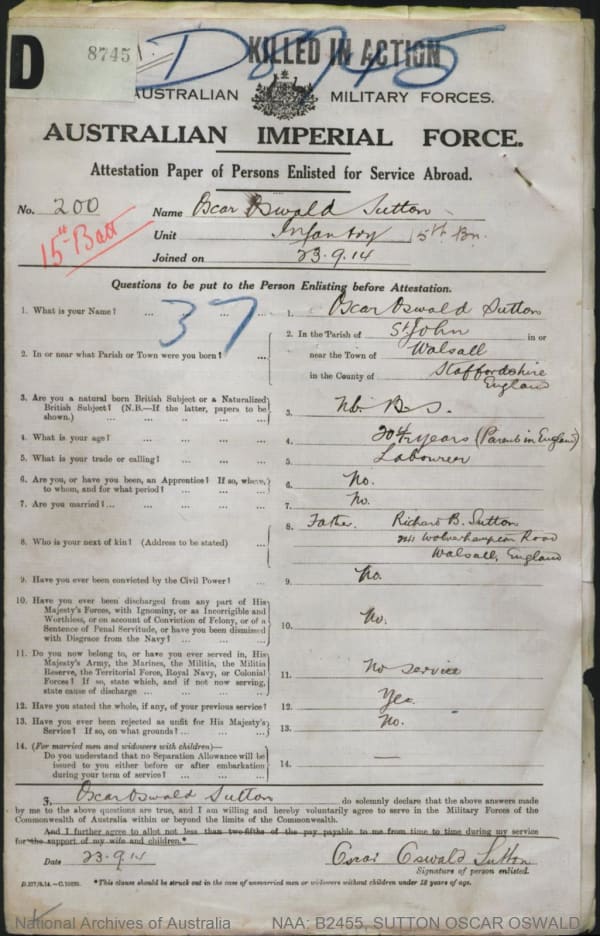 D
8745
D8745
KILLED IN ACTION
AUSTRALIAN MILITARY FORCES.
AUSTRALIAN IMPERIAL FORCE.
Attestation Paper of Persons Enlisted for Service Abroad.
No. 200 Name Oscar Oswald Sutton
15th Batt
Unit Infantry 5th Bn.
Joined on 23.9.14
Questions to be put to the Person Enlisting before Attestation.
37
1. What is your Name? ... ... ... 1. Oscar Oswald Sutton
2. In or near what Parish or Town were you born? ... 2. In the Parish of St John in or
near the Town of Walsall
in the County of Staffordshire
England
3. Are you a natural born British Subject or a Naturalized
British Subject? (N.B.—If the latter, papers to be
shown.) ... ... ... 3. Nb. B.S.
4. What is your age? ... ... ... 4. 20 4/12 years (Parents in England)
5. What is your trade or calling? ... ... 5. Labourer
6. Are you, or have you been, an Apprentice? If so, where,
to whom, and for what period? ... ... 6. No.
7. Are you married? ... ... ... 7. No.
8. Who is your next of kin? (Address to be stated) ... 8. Father. Richard B. Sutton
Wolverhampton Road
Walsall, England
9. Have you ever been convicted by the Civil Power? ... 9. No.
10. Have you ever been discharged from any part of His
Majesty's Forces, with Ignominy, or as Incorrigible and
Worthless, or on account of Conviction of Felony, or of a
Sentence of Penal Servitude, or have you been dismissed
with Disgrace from the Navy? ... ... 10. No.
11. Do you now belong to, or have you ever served in, His
Majesty's Army, the Marines, the Militia, the Militia
Reserve, the Territorial Force, Royal Navy, or Colonial
Forces? If so, state which, and if not now serving,
state cause of discharge ... ... 11. No service
12. Have you stated the whole, if any, of your previous service? 12. Yes.
13. Have you ever been rejected as unfit for His Majesty's
Service? If so, on what grounds? ... ... 13. No.
14. (For married men and widowers with children)—
Do you understand that no Separation Allowance will be
issued to you either before or after embarkation
during your term of service? ... ... 14. —
I, Oscar Oswald Sutton do solemnly declare that the above answers made
by me to the above questions are true, and I am willing and hereby voluntarily agree to serve in the Military Forces of the
Commonwealth of Australia within or beyond the limits of the Commonwealth.
And I further agree to allot not less than two-fifths of the pay payable to me from time to time during my service
for the support of my wife and children.*
Date 23.9.14 Oscar Oswald Sutton
Signature of person enlisted.
*This clause should be struck out in the case of unmarried men or widowers without children under 18 years of age.
National Archives of Australia NAA: B2455, SUTTON OSCAR OSWALD